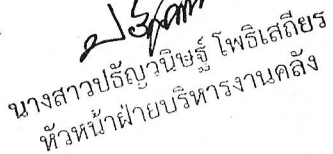 นางสาวปรัญวนิษฐ์ โพธิเสถียร
หัวหน้าฝ่ายบริหารงานคลัง